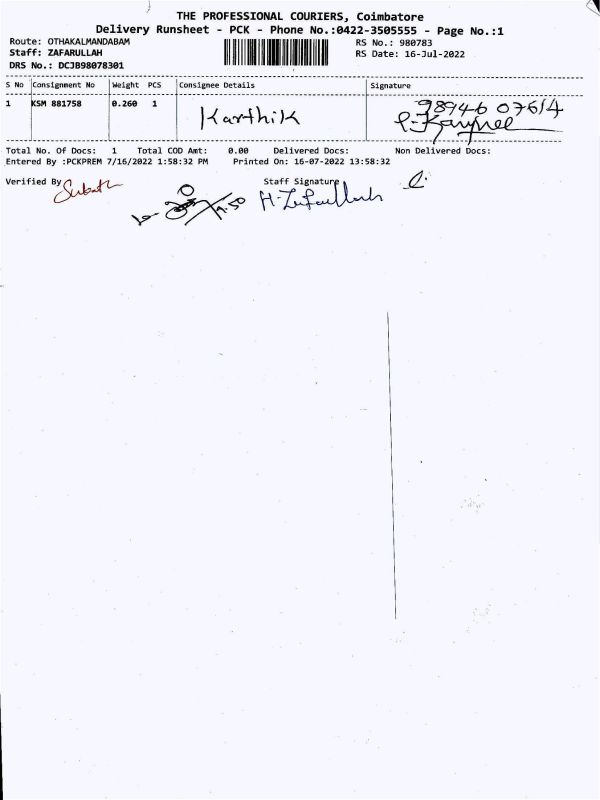 THE PROFESSIONAL COURIERS, Coimbatore
Delivery Runsheet - PCK - Phone No.:0422-3505555 - Page No.:1
Route: OTHAKALMANDABAM RS No.: 980783
Staff: ZAFARULLAH RS Date: 16-Jul-2022
DRS No.: DCJB98078301
S No Consignment No Weight PCS Consignee Details Signature
1 KSM 881758 0.260 1 Karthik 98946 07614
Total No. Of Docs: 1 Total COD Amt: 0.00 Delivered Docs: Non Delivered Docs:
Entered By :PCKPREM 7/16/2022 1:58:32 PM Printed On: 16-07-2022 13:58:32
Verified By Staff Signature
H-Zafarullah